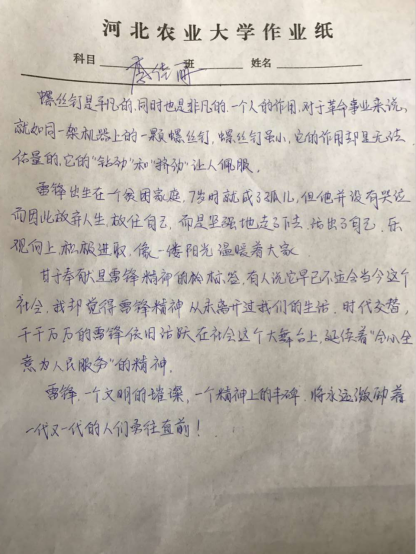 河北农业大学作业纸
科目 班 姓名
螺丝钉是平凡的,同时也是非凡的.一个人的作用,对于革命事业来说,
就如同一架机器上的一颗螺丝钉.螺丝钉虽小,它的作用却是无法
估量的,它的"钻劲"和"挤劲"让人佩服。
雷锋出生在一个贫困家庭,7岁时就成了孤儿,但他并没有哭泣
而因此放弃人生,放任自己,而是坚强地走了下去,活出了自己,乐
观向上积极进取,像一缕阳光温暖着大家.
甘于奉献是雷锋精神的标签,有人说它早已不适合当今这个
社会,我却觉得雷锋精神从未离开过我们的生活.时代交替,
千千万万的雷锋依旧活跃在社会这个大舞台上,延续着"全心全
意为人民服务"的精神.
雷锋,一个文明的璀璨,一个精神上的丰碑,将永远激励着
一代又一代的人们勇往直前!